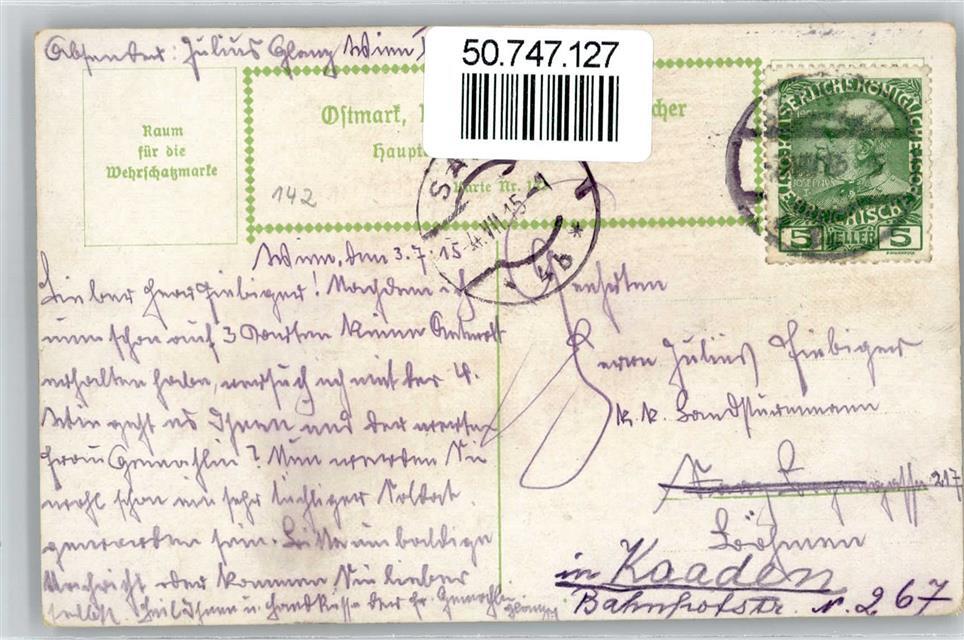 Absender: Julius Glanz Wien
50.747.127
Raum
für die
Wehrschatzmarke
Ostmark,
Haupt
Karte Nr.
142
KAISERLICHE KÖNIGLICHE
ÖSTERREICHISCHE POST
5 HELLER 5
4.VII.15
4b
Wien, den 3.7.15
Lieber Herr Fiebiger! Nachdem ich
nun schon auf 3 Karten keine Antwort
erhalten habe, versuch ich mit der 4.
Wie geht es Ihnen und der werten
Frau Gemahlin? Nun werden Sie
wohl schon ein sehr tüchtiger Soldat
geworden sein. Bitte um baldige
Nachricht oder kommen Sie lieber
selbst. Heil Ihnen u. Handküsse der Fr. Gemahlin
Glanz
Herrn Julius Fiebiger
k. k. Landsturmmann
217
Böhmen
in Kaaden
Bahnhofstr. N. 267